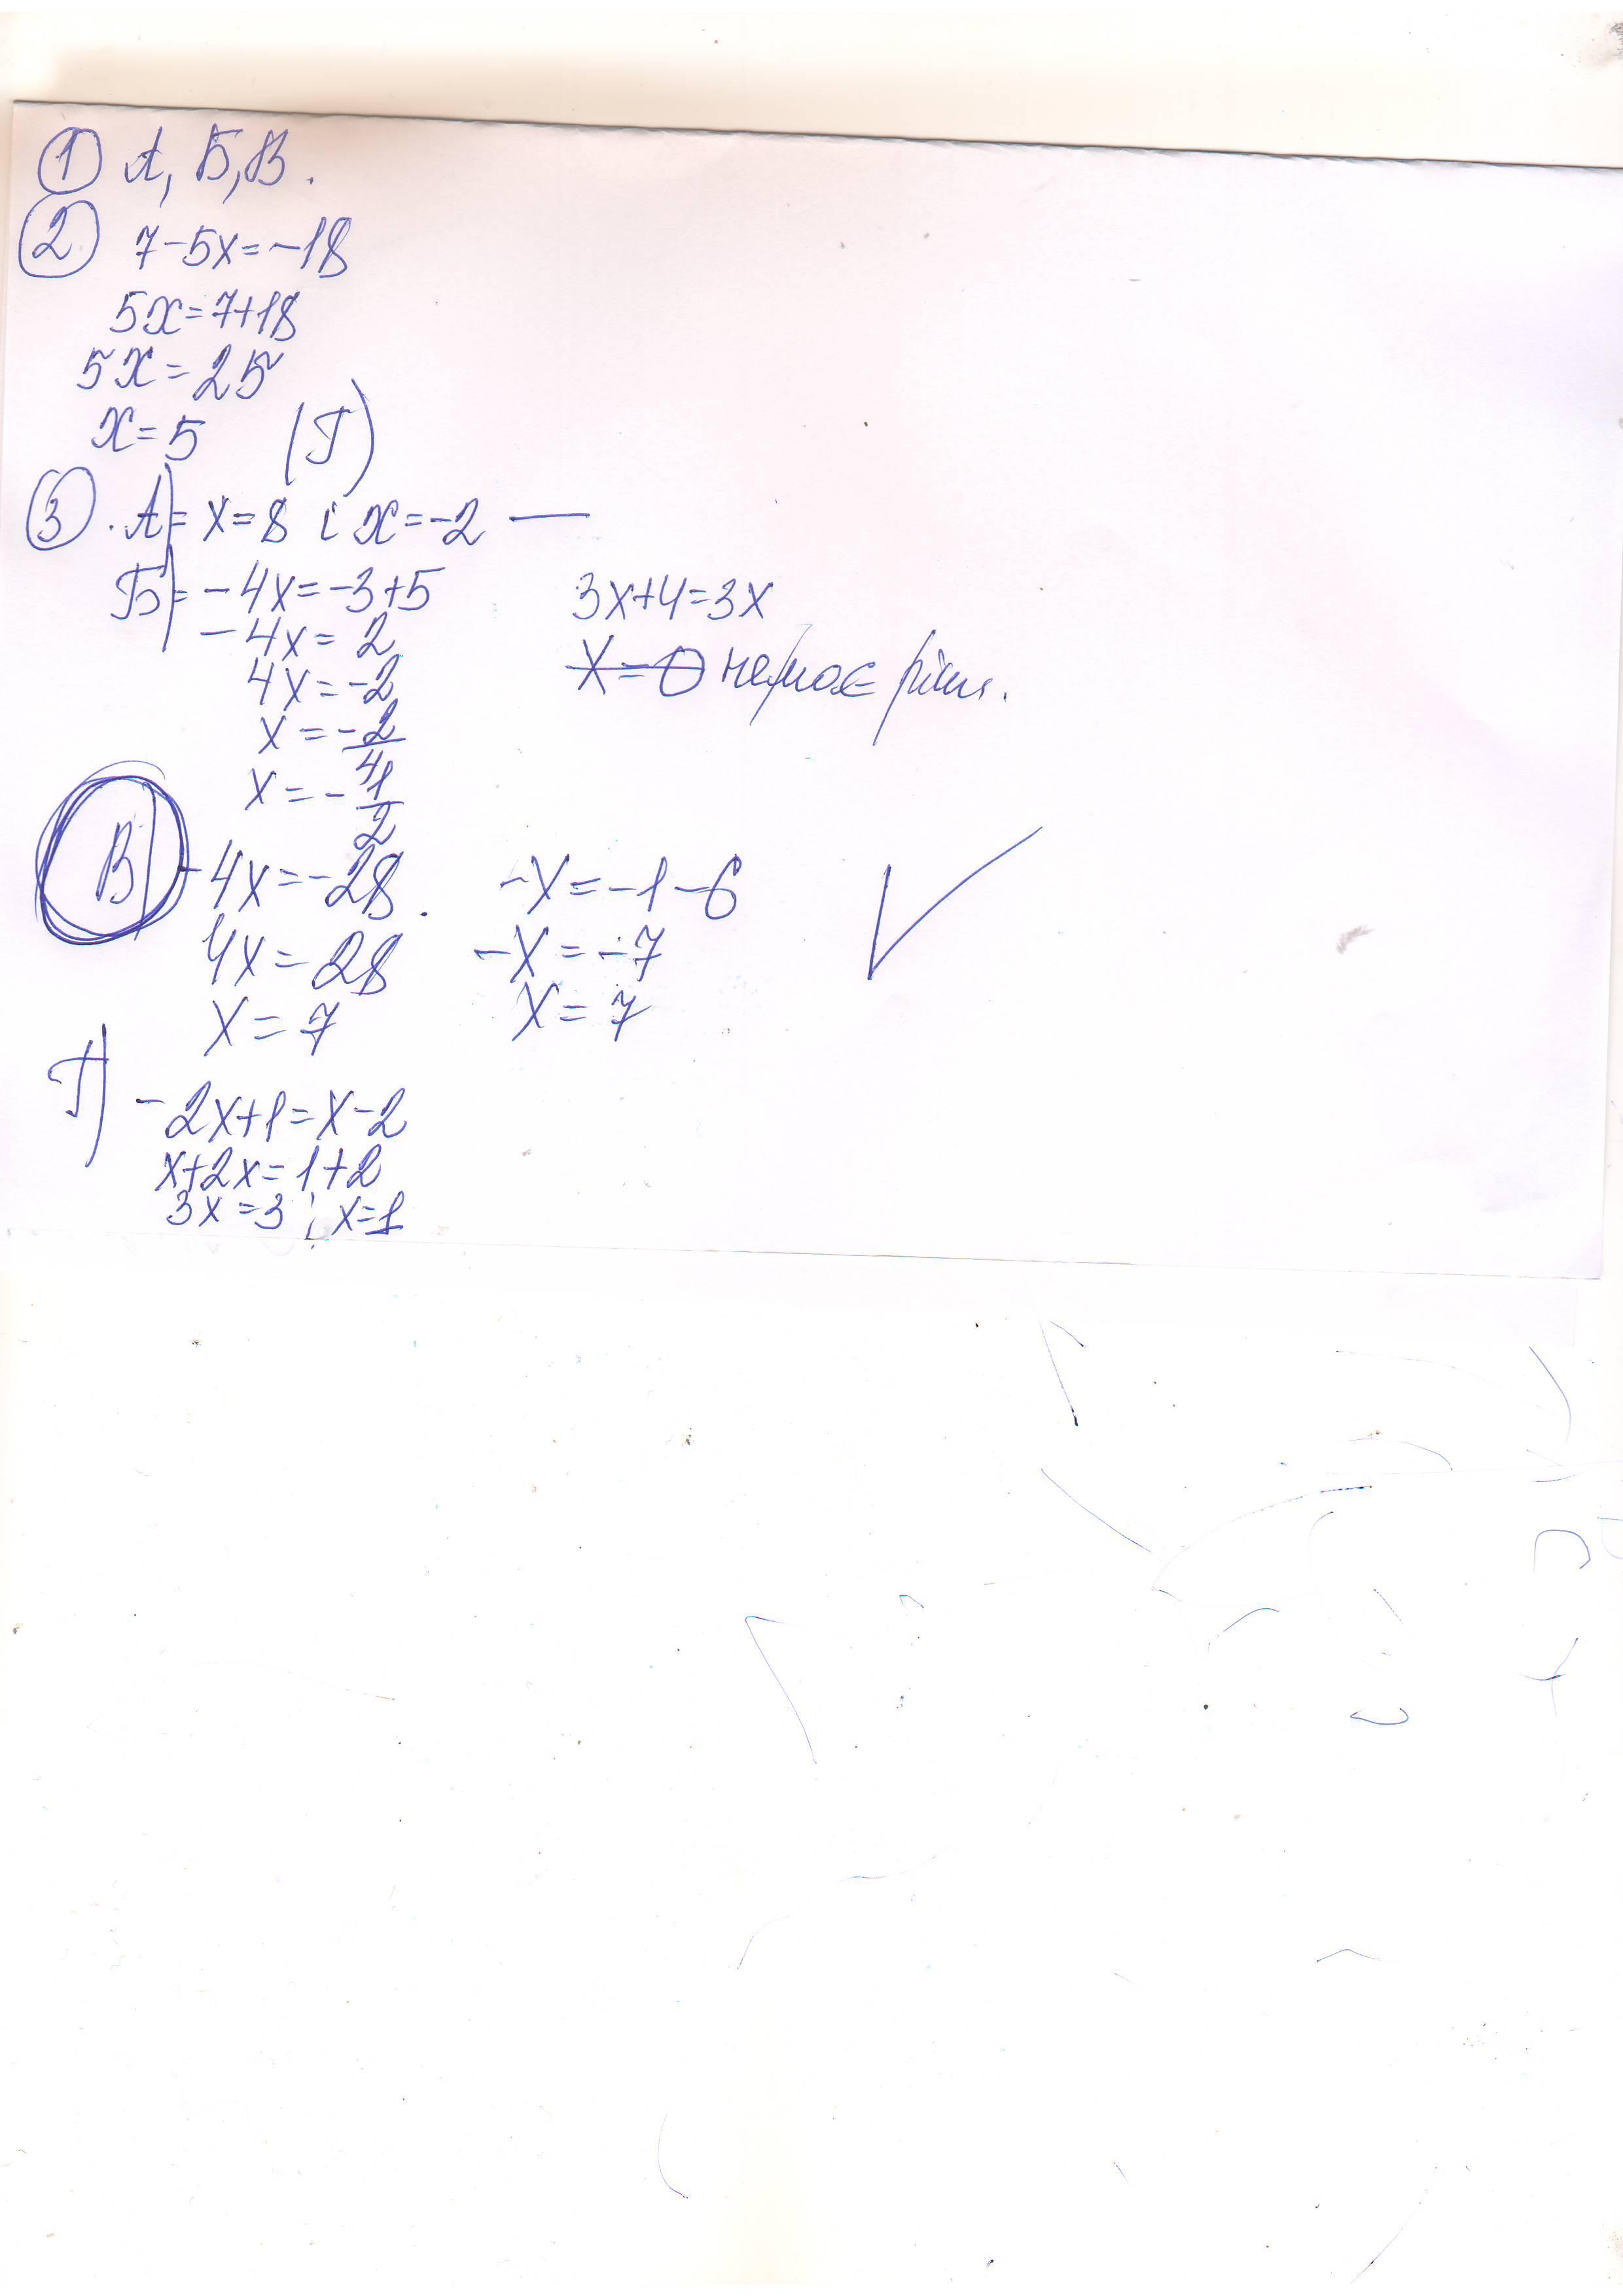 1 А, Б, В.
2 7-5x=-18
5x=7+18
5x=25
x=5 (Г)
3. А)= x=8 і x=-2 —
Б)= -4x=-3+5 3x+4=3x
-4x=2 x=0 немає розв.
4x=-2
x=-2/4
x=-1/2
В) -4x=-28. -x=-1-6
4x=28 -x=-7
x=7 x=7
Г) -2x+1=x-2
x+2x=1+2
3x=3; x=1